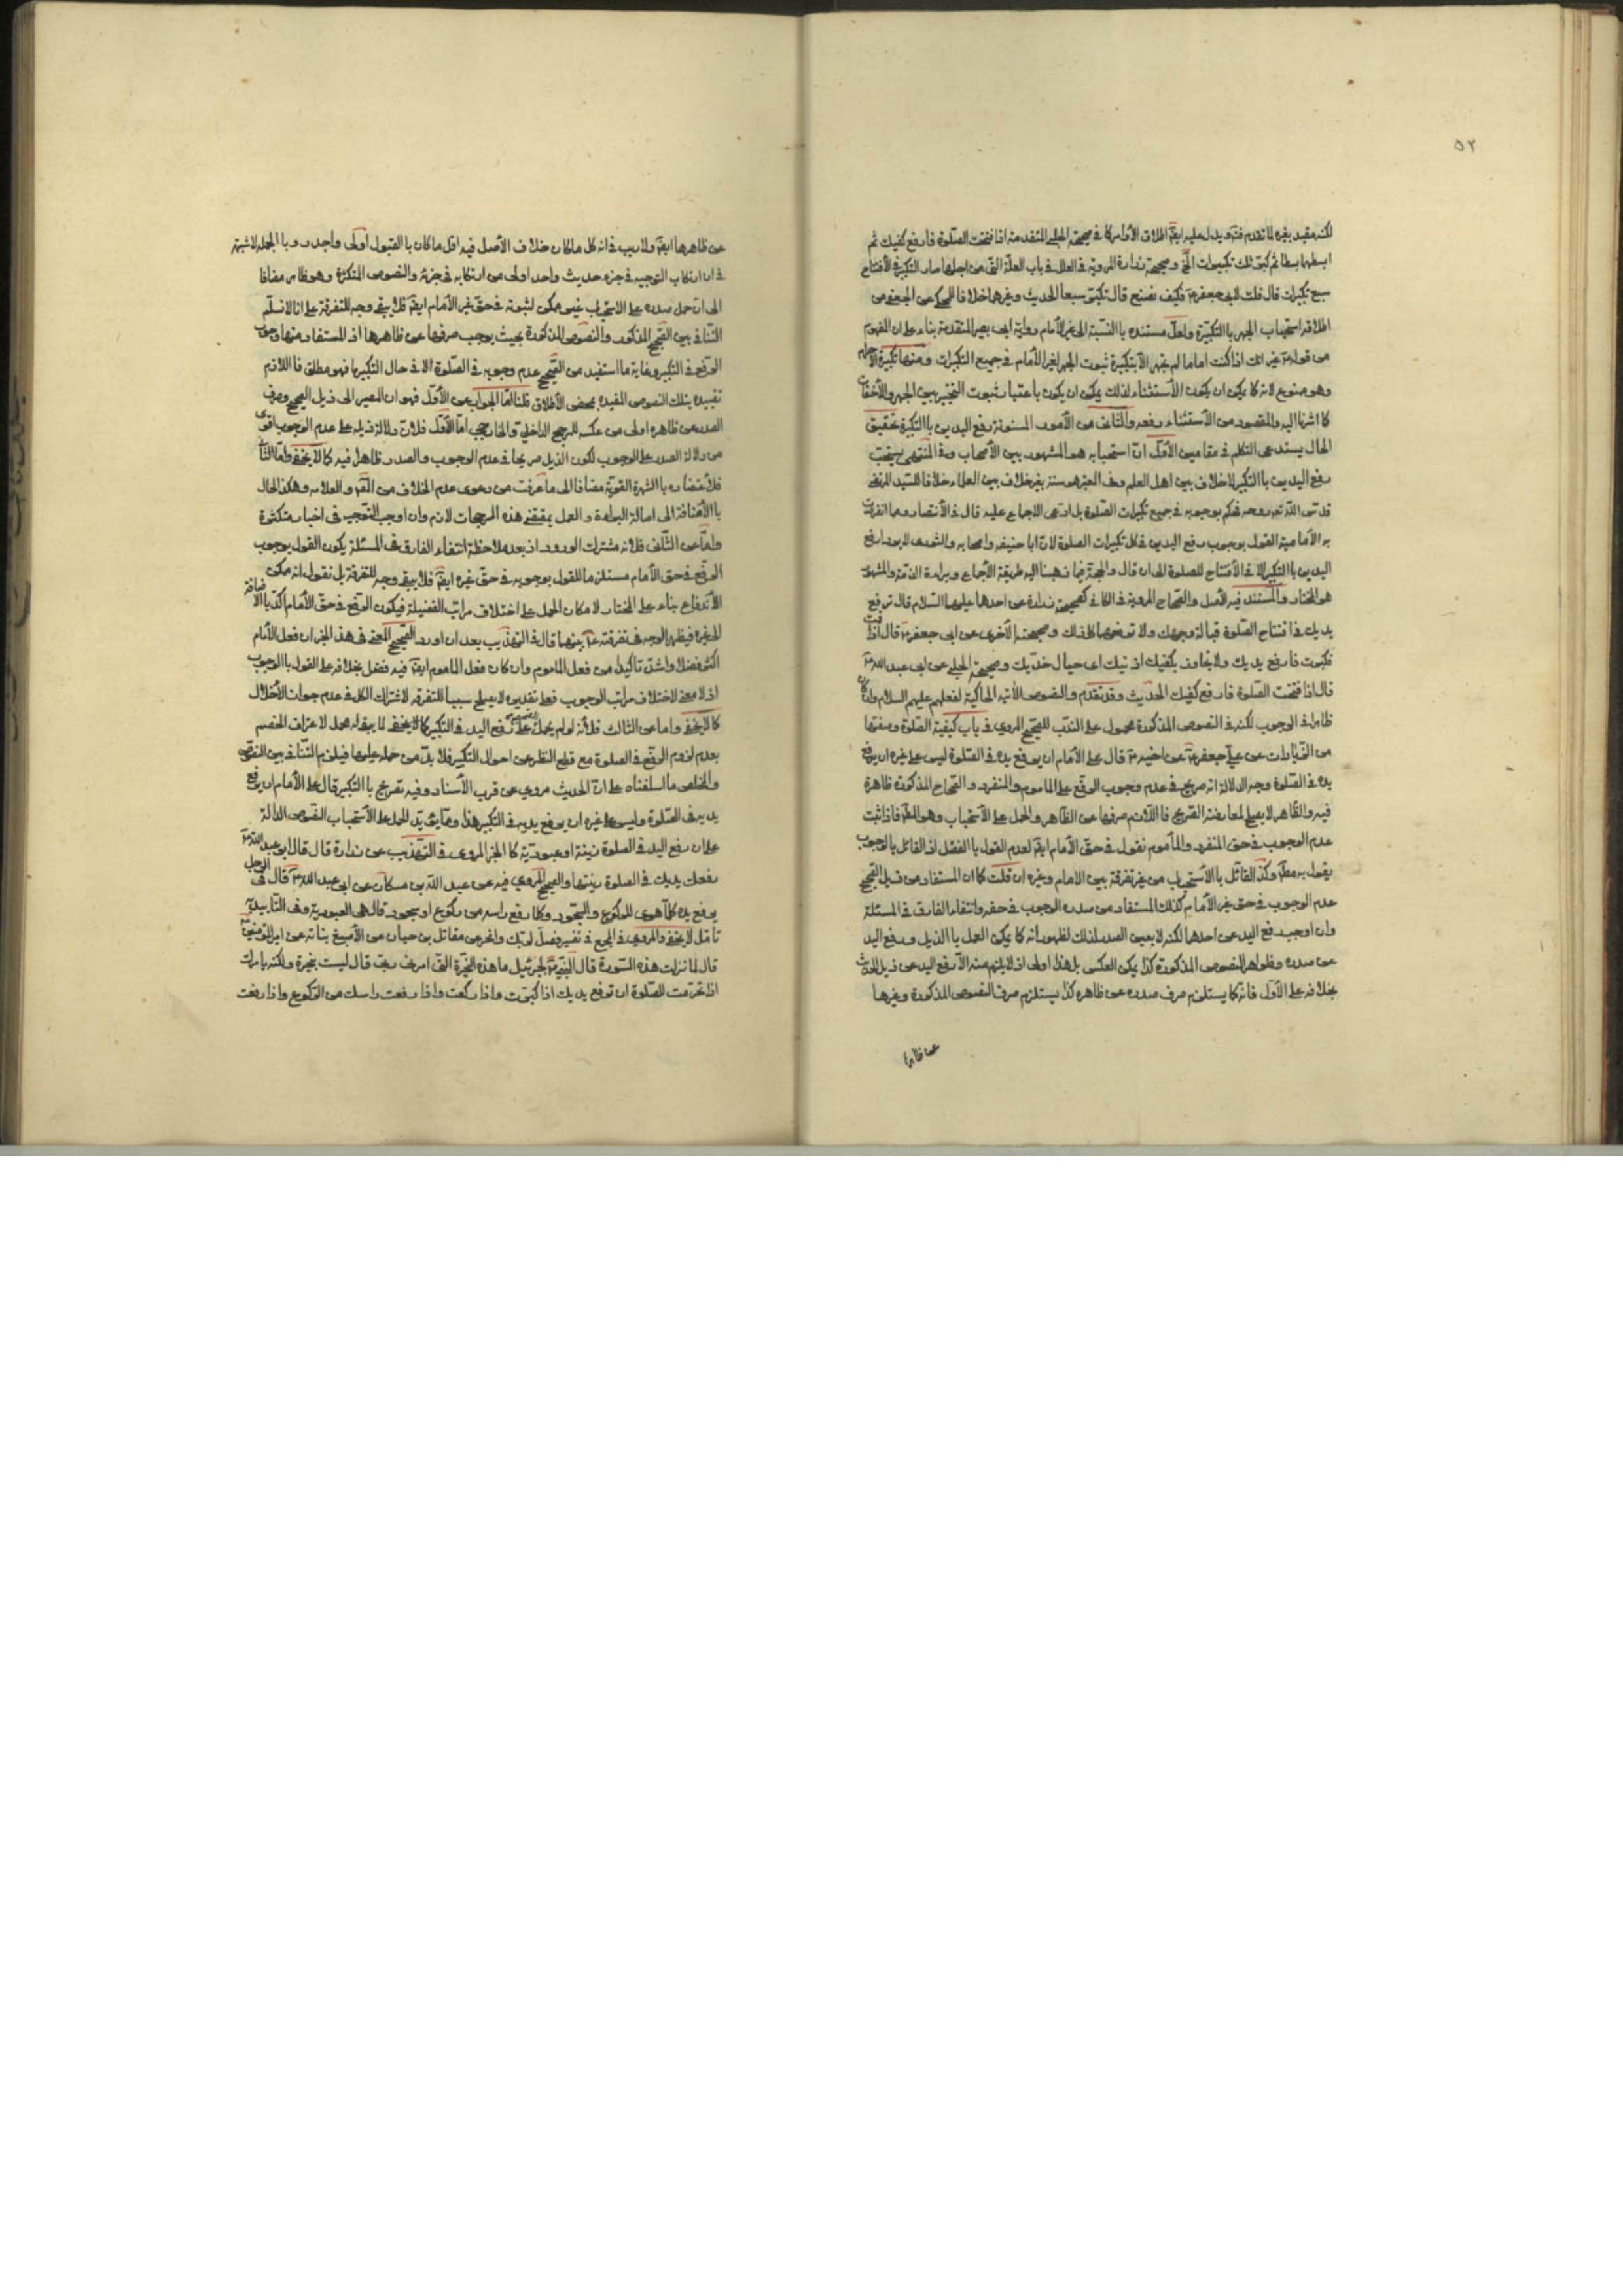 ٥٢
لكنه مقيد بغيره لما تقدم فت ويدل عليه ايضا اطلاق الأوامر كما في صحيحة الحلبي المتقدمة اذا افتتحت الصلوة فارفع كفيك ثم
ابسطهما بسطا ثم كبر ثلث تكبيرات الخ وصحيحة زرارة المروية في العلل في باب العلة التي من اجلها صار التكبير في الأفتتاح
سبع تكبيرات قال قلت لابي جعفر ع فكيف نصنع قال تكبر سبعا الحديث وغيرها خلافا للمحكي عن الجعفي من
اطلاقه استحباب الجهر بالتكبيرة ولعل مستنده بالنسبة الى غير الأمام رواية ابي بصير المتقدمة بناء على ان المفهوم
من قوله ع غير انك اذا كنت اماما لم تجهر الا بتكبيرة ثبوت الجهر لغير الأمام في جميع التكبيرات ومنها تكبيرة الأحرام
وهو ممنوع لانه كما يمكن ان يكون الأستثناء لذلك يمكن ان يكون باعتبار ثبوت التخيير بين الجهر والأخفات
كما اشرنا اليه والمقصود من الأستثناء رفعه والثاني من الأمور المسنونة رفع اليدين بالتكبيرة تحقيق
الحال يستدعي التكلم في مقامين الأول ان استحبابه هو المشهور بين الأصحاب وفي المنتهى يستحب
رفع اليدين بالتكبير لاخلاف بين اهل العلم وفي المعتبر هو سنة بغير خلاف بين العلماء خلافا للسيد المرتضى
قدس الله تع روحه فحكم بوجوبه في جميع تكبيرات الصلوة بل ادعى الاجماع عليه قال في الأنتصار ومما انفردت
به الأمامية القول بوجوب رفع اليدين في كل تكبيرات الصلوة لان ابا حنيفه واصحابه والثوري لا يرون رفع
اليدين بالتكبير الا في الأفتتاح للصلوة الى ان قال والحجة فيما ذهبنا اليه طريقة الأجماع وبراءة الذمة والمشهور
هو المختار والمستند فيه الأصل والصحاح المروية في الكافي كصحيحة زرارة عن احدهما عليهما السلام قال ترفع
يديك في افتتاح الصلوة قبالة وجهك ولا ترفعهما كل ذلك وصحيحته الأخرى عن ابي جعفر ع قال اذا قمت
فكبرت فارفع يديك ولا تجاوز بكفيك اذنيك اي حيال خديك وصحيحة الحلبي عن ابي عبد الله ع
قال اذا افتتحت الصلوة فارفع كفيك الحديث وقد تقدم والنصوص الأتية الحاكية لفعلهم عليهم السلام وان كان
ظاهرا في الوجوب لكنه في النصوص المذكورة محمول على الندب للصحيح المروي في باب كيفية الصلوة وصفتها
من الزيادات عن علي بن جعفر عن اخيه ع قال على الأمام ان يرفع يده في الصلوة ليس على غيره ان يرفع
يده في الصلوة وجه الدلالة انه صريح في عدم وجوب الرفع على الماموم والمنفرد والصحاح المذكورة ظاهرة
فيه والظاهر لا يصلح لمعارضة الصريح فاللازم صرفها عن الظاهر والحمل على الأستحباب وهو المط فاذا ثبت
عدم الوجوب في حق المنفرد والمأموم نقول في حق الأمام ايضا لعدم القول بالفصل اذ القائل بالوجوب
يقول به مط وكذا القائل بالأستحباب من غير تفرقة بين الامام وغيره ان قلت كما ان المستفاد من ذيل الصحيح
عدم الوجوب في حق غير الأمام كذلك المستفاد من صدره الوجوب في حقه وانتفاء الفارق في المسئلة
وان اوجب رفع اليد عن احدهما لكنه لا يعين الصدر لذلك لظهور انه كما يمكن العمل بالذيل ورفع اليد
عن صدره وظواهر النصوص المذكورة كذا يمكن العكس بل هذا اولى اذ لا يلزم منه الا رفع اليد عن ذيل الحديث
بخلافه على الأول فانه كما يستلزم صرف صدره عن ظاهره كذا يستلزم صرف النصوص المذكورة وغيرها
عن ظاهرها
عن ظاهرها ايضا ولا ريب في انه كل ما كان خلاف الأصل فيه اقل ما كان بالقبول اولى واجدر وبالجملة لا شبهة
في ان ارتكاب التوجيه في جزء حديث واحد اولى من ارتكابه في جزئه والنصوص المتكثرة وهو ظاهر مضافا
الى ان حمل صدره على الاستحباب غير ممكن لثبوته في حق غير الأمام ايضا فلا يبقى وجه للتفرقة على انا لا نسلم
التنافي بين الصحيح المذكور والنصوص المذكورة بحيث يوجب صرفها عن ظاهرها اذ المستفاد منها وجوب
الرفع في التكبير وغاية ما استفيد من الصحيح عدم وجوبه في الصلوة الا في حال التكبير فهو مطلق فاللازم
تقييده بتلك النصوص المفيدة بمحض الأطلاق قلنا اما الجواب عن الأول فهو ان المصير الى ذيل الصحيح وصرف
الصدر عن ظاهره اولى من عكسه للمرجح الداخلي والخارجي اما الأول فلان دلالة ذيله على عدم الوجوب اقوى
من دلالة الصدر على الوجوب لكون الذيل صريحا في عدم الوجوب والصدر ظاهرا فيه كما لا يخفى واما الثاني
فلأعتضاده بالشهرة القوية مضافا الى ما عرفت من دعوى عدم الخلاف من المحقق والعلامه وهكذا الحال
بالأضافة الى اصالة البراءة والعمل بمقتضى هذه المرجحات لازم وان اوجب التوجيه في اخبار متكثرة
واما عن الثاني فلانه مشترك الورود اذ بعد ملاحظة انتفاء الفارق في المسئلة يكون القول بوجوب
الرفع في حق الأمام مستلزما للقول بوجوبه في حق غيره ايضا فلا يبقى وجه للتفرقة بل نقول انه ممكن
الأندفاع بناء على المختار لامكان الحمل على اختلاف مراتب الفضيلة فيكون الرفع في حق الأمام اكد بالاضافة
الى غيره فيظهر الوجه في تفرقته ع بينهما قال في التهذيب بعد ان اورد الصحيح المعنى في هذا الخبر ان فعل الأمام
اكثر فضلا واشد تأكيدا من فعل الماموم وان كان فعل الماموم ايضا فيه فضل بخلافه على القول بالوجوب
اذ لا معنى لاختلاف مراتب الوجوب فعلى تقديره لا يصلح سببا للتفرقه لاشتراك الكل في عدم جواز الأخلال
كما لا يخفى واما عن الثالث فلأنه لو لم يحمل على رفع اليد في التكبير كما لا يخفى لما يبقى له محمل لاعتراف الخصم
بعدم لزوم الرفع في الصلوة مع قطع النظر عن احوال التكبير فلا بد من حمله عليها فيلزم التنافي بين النصوص
والمخلص ما اسلفناه على ان الحديث مروي عن قرب الأسناد وفيه تصريح بالتكبير قال على الأمام ان يرفع
يديه في الصلوة وليس على غيره ان يرفع يديه في التكبير هذا ومما يؤيد الحمل على الأستحباب النصوص الدالة
على ان رفع اليد في الصلوة زينة او عبودية كالخبر المروي في التهذيب عن زرارة قال قال ابو عبد الله ع
رفعك يديك في الصلوة زينتها والصحيح المروي فيه عن عبد الله بن مسكان عن ابي عبد الله ع قال في الرجل
يرفع يده كلما اهوى للركوع والسجود وكلما رفع راسه من ركوع او سجود قال هي العبودية وفي التأييد به
تامل لا يخفى والمروي في المجمع في تفسير فصل لربك وانحر عن مقاتل بن حيان عن الأصبغ بن نباته عن امير المؤمنين ع
قال لما نزلت هذه السورة قال النبي ص لجبرئيل ما هذه النحيرة التي امرني ربي قال ليست بنحيرة ولكنه يامرك
اذا تحرمت للصلوة ان ترفع يديك اذا كبرت واذا ركعت واذا رفعت راسك من الركوع واذا رفعت